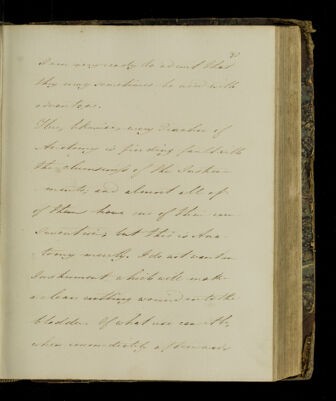 I am very ready to admit that
they may sometimes be used with
advantage.
Thus, likewise, every Teacher of
Anatomy is finding fault with
the clumsiness of the Instru-
-ments; and almost all of
of them have one of their own
Invention; but this is Ana-
tomy merely. I do not want an
Instrument which will make
a clean cutting wound into the
bladder. Of what use can it be,
when immediately afterwards